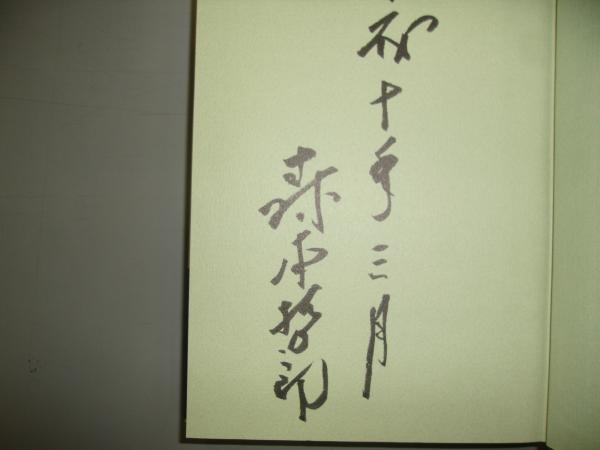 十年三月
森本哲郎